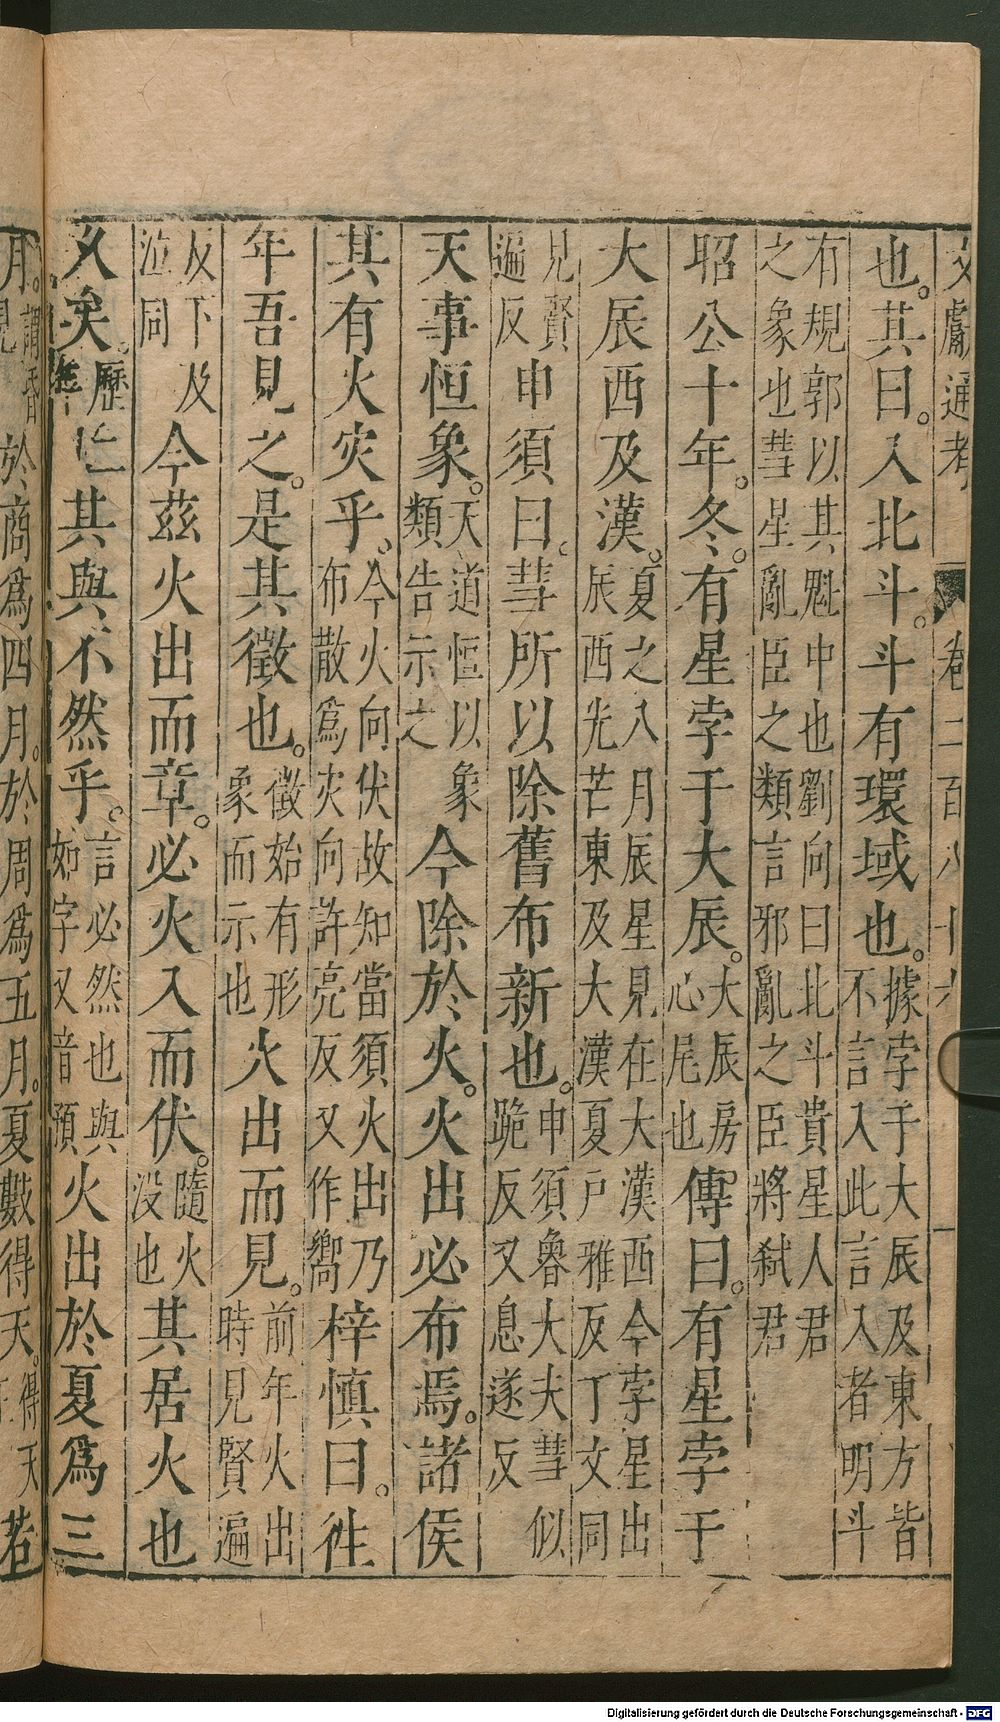 文獻通考 卷二百八十六 一
也。其曰。入北斗。斗有環域也。據孛于大辰及東方皆不言入此言入者明斗
有規郭以其魁中也劉向曰北斗貴星人君之象也彗星亂臣之類言邪亂之臣將弒君
昭公十年。冬。有星孛于大辰。大辰房心尾也傳曰。有星孛于
大辰西及漢。夏之八月辰星見在大漢西今孛星出辰西光芒東及大漢夏戶雅反丁文同
見賢遍反申須曰。彗所以除舊布新也。申須魯大夫彗似跪反又息遂反
天事恒象。天道恒以象類告示之今除於火。火出必布焉。諸侯
其有火灾乎。今火向伏故知當須火出乃布散爲灾向許亮反又作嚮梓慎曰。徃
年吾見之。是其徵也。徵始有形象而示也火出而見。前年火出時見賢遍
反下及泣同今茲火出而章。必火入而伏。隨火没也其居火也
久矣。歷其與不然乎。言必然也與如字又音預火出於夏爲三
月。謂昏見於商爲四月。於周爲五月。夏數得天。得天若
Digitalisierung gefördert durch die Deutsche Forschungsgemeinschaft - DFG